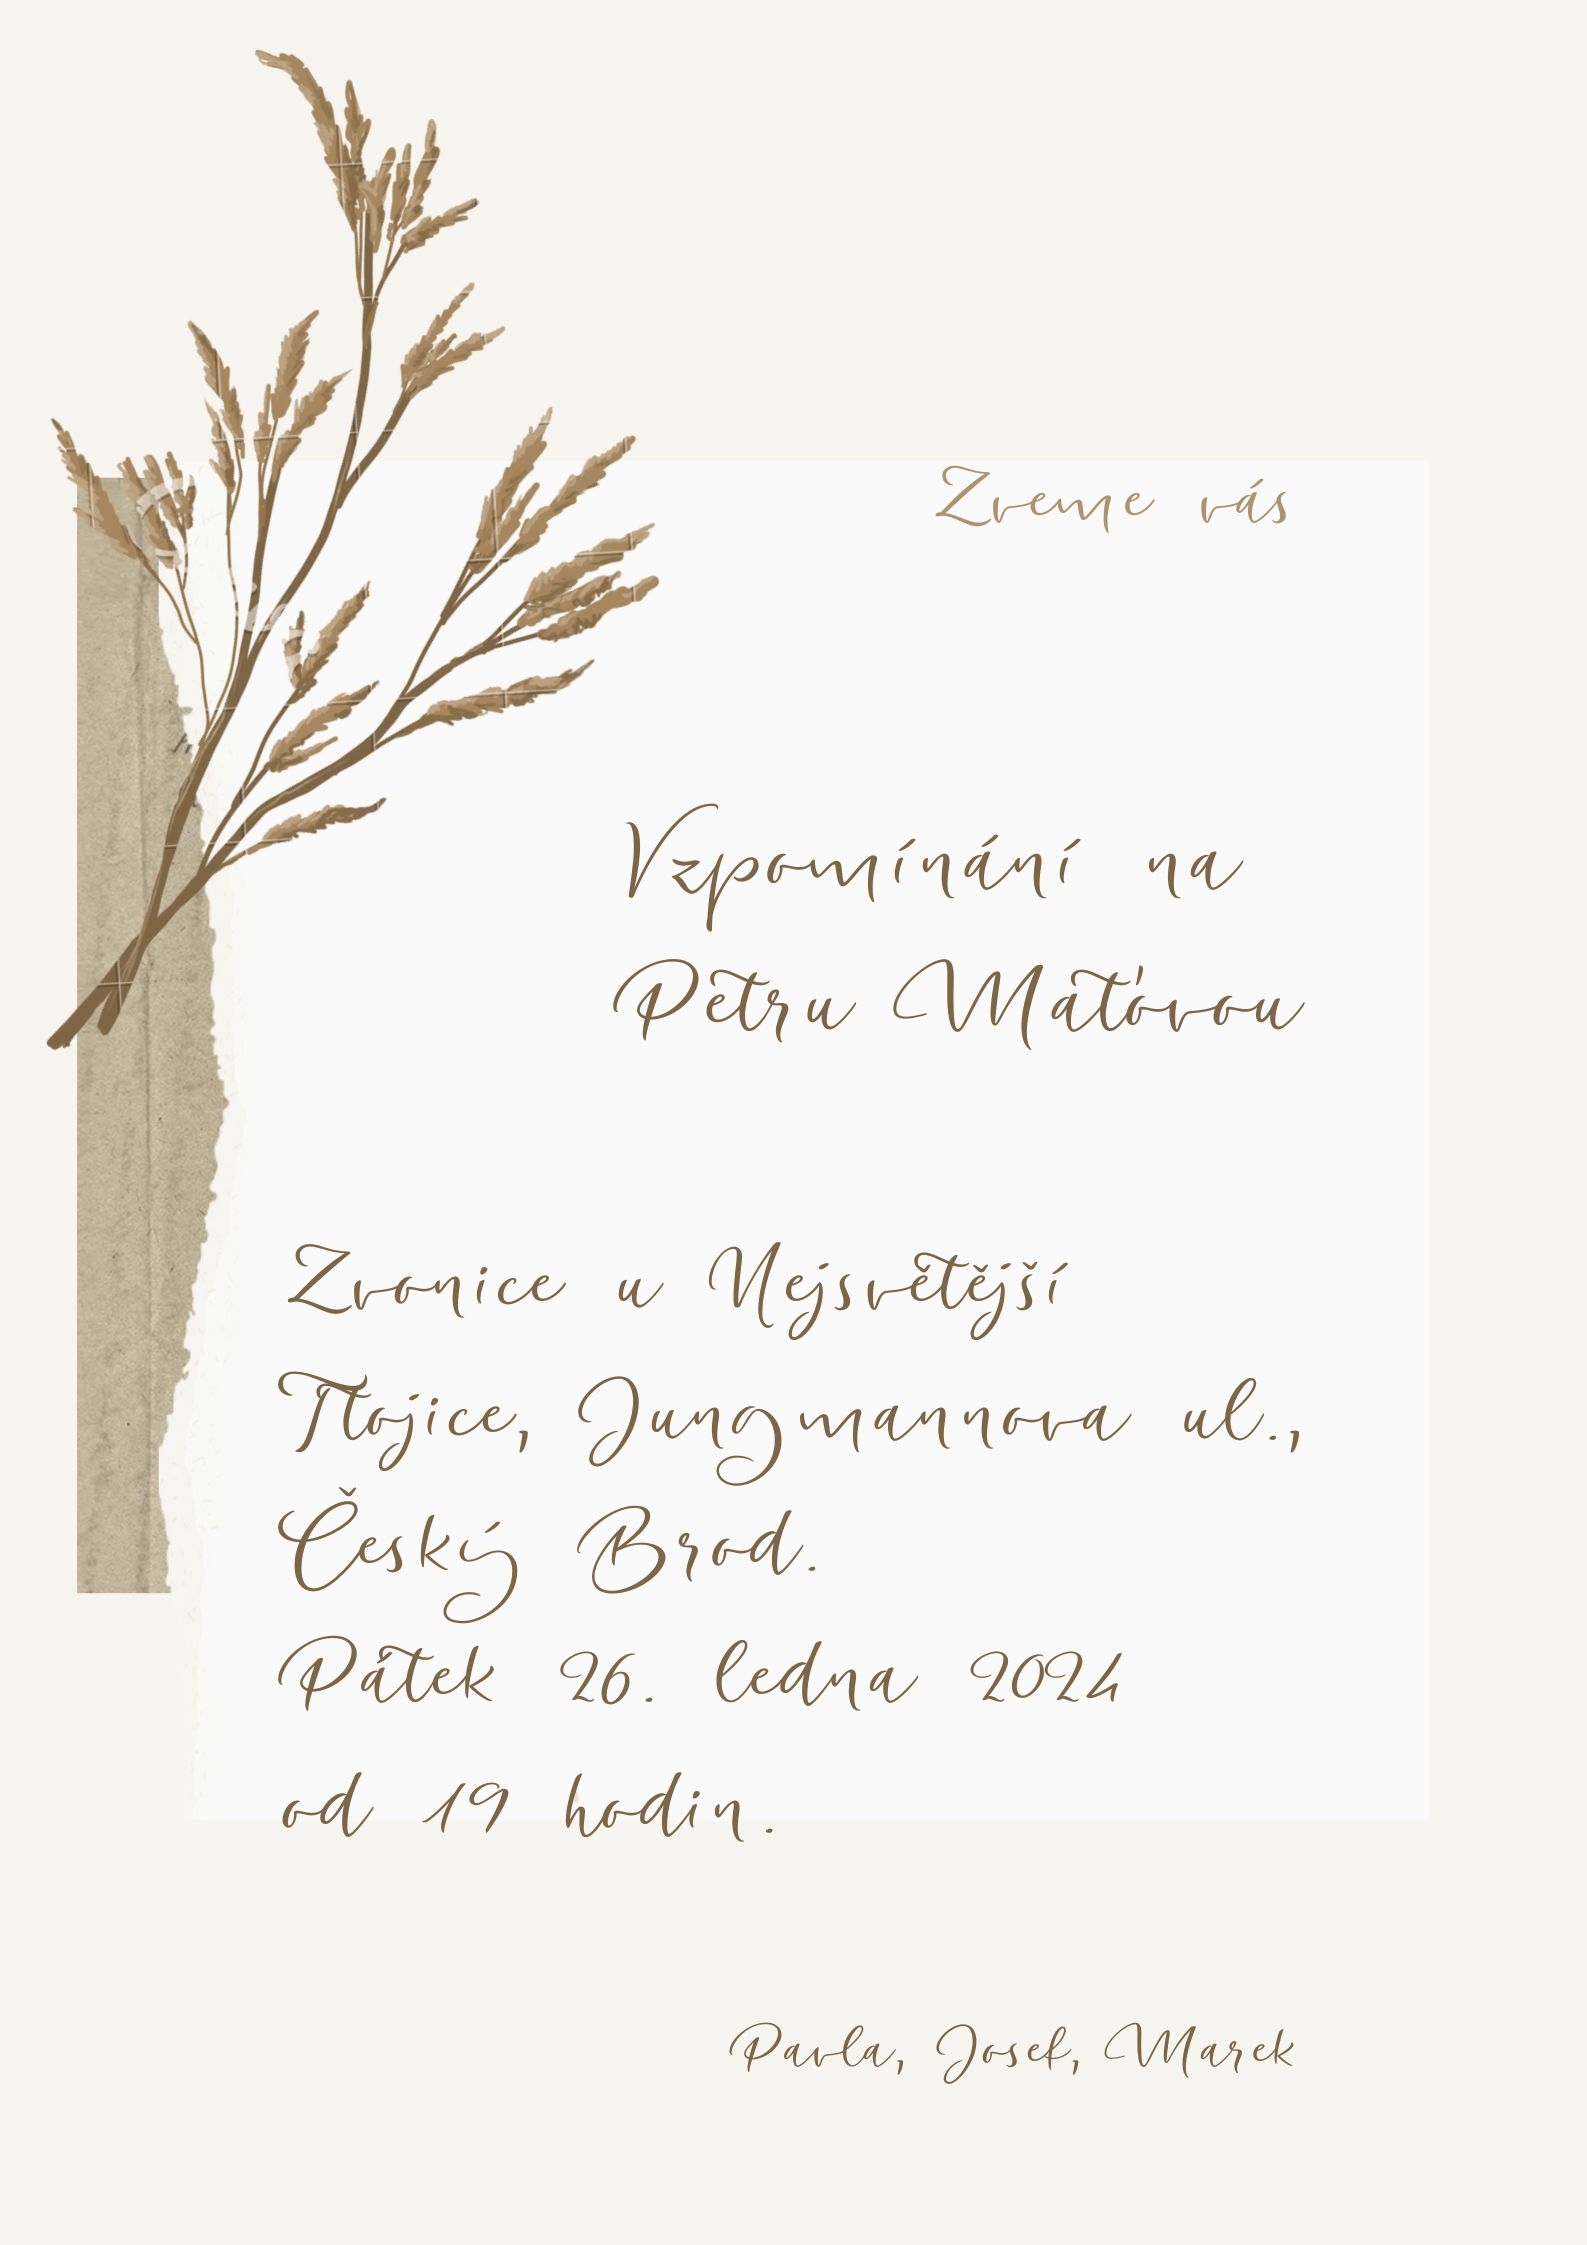 Zveme vás
Vzpomínání na
Petru Maťovou
Zvonice u Nejsvětější
Tlojice, Jungmannova ul.,
Český Brod.
Pátek 26. ledna 2024
od 19 hodin.
Pavla, Josef, Marek